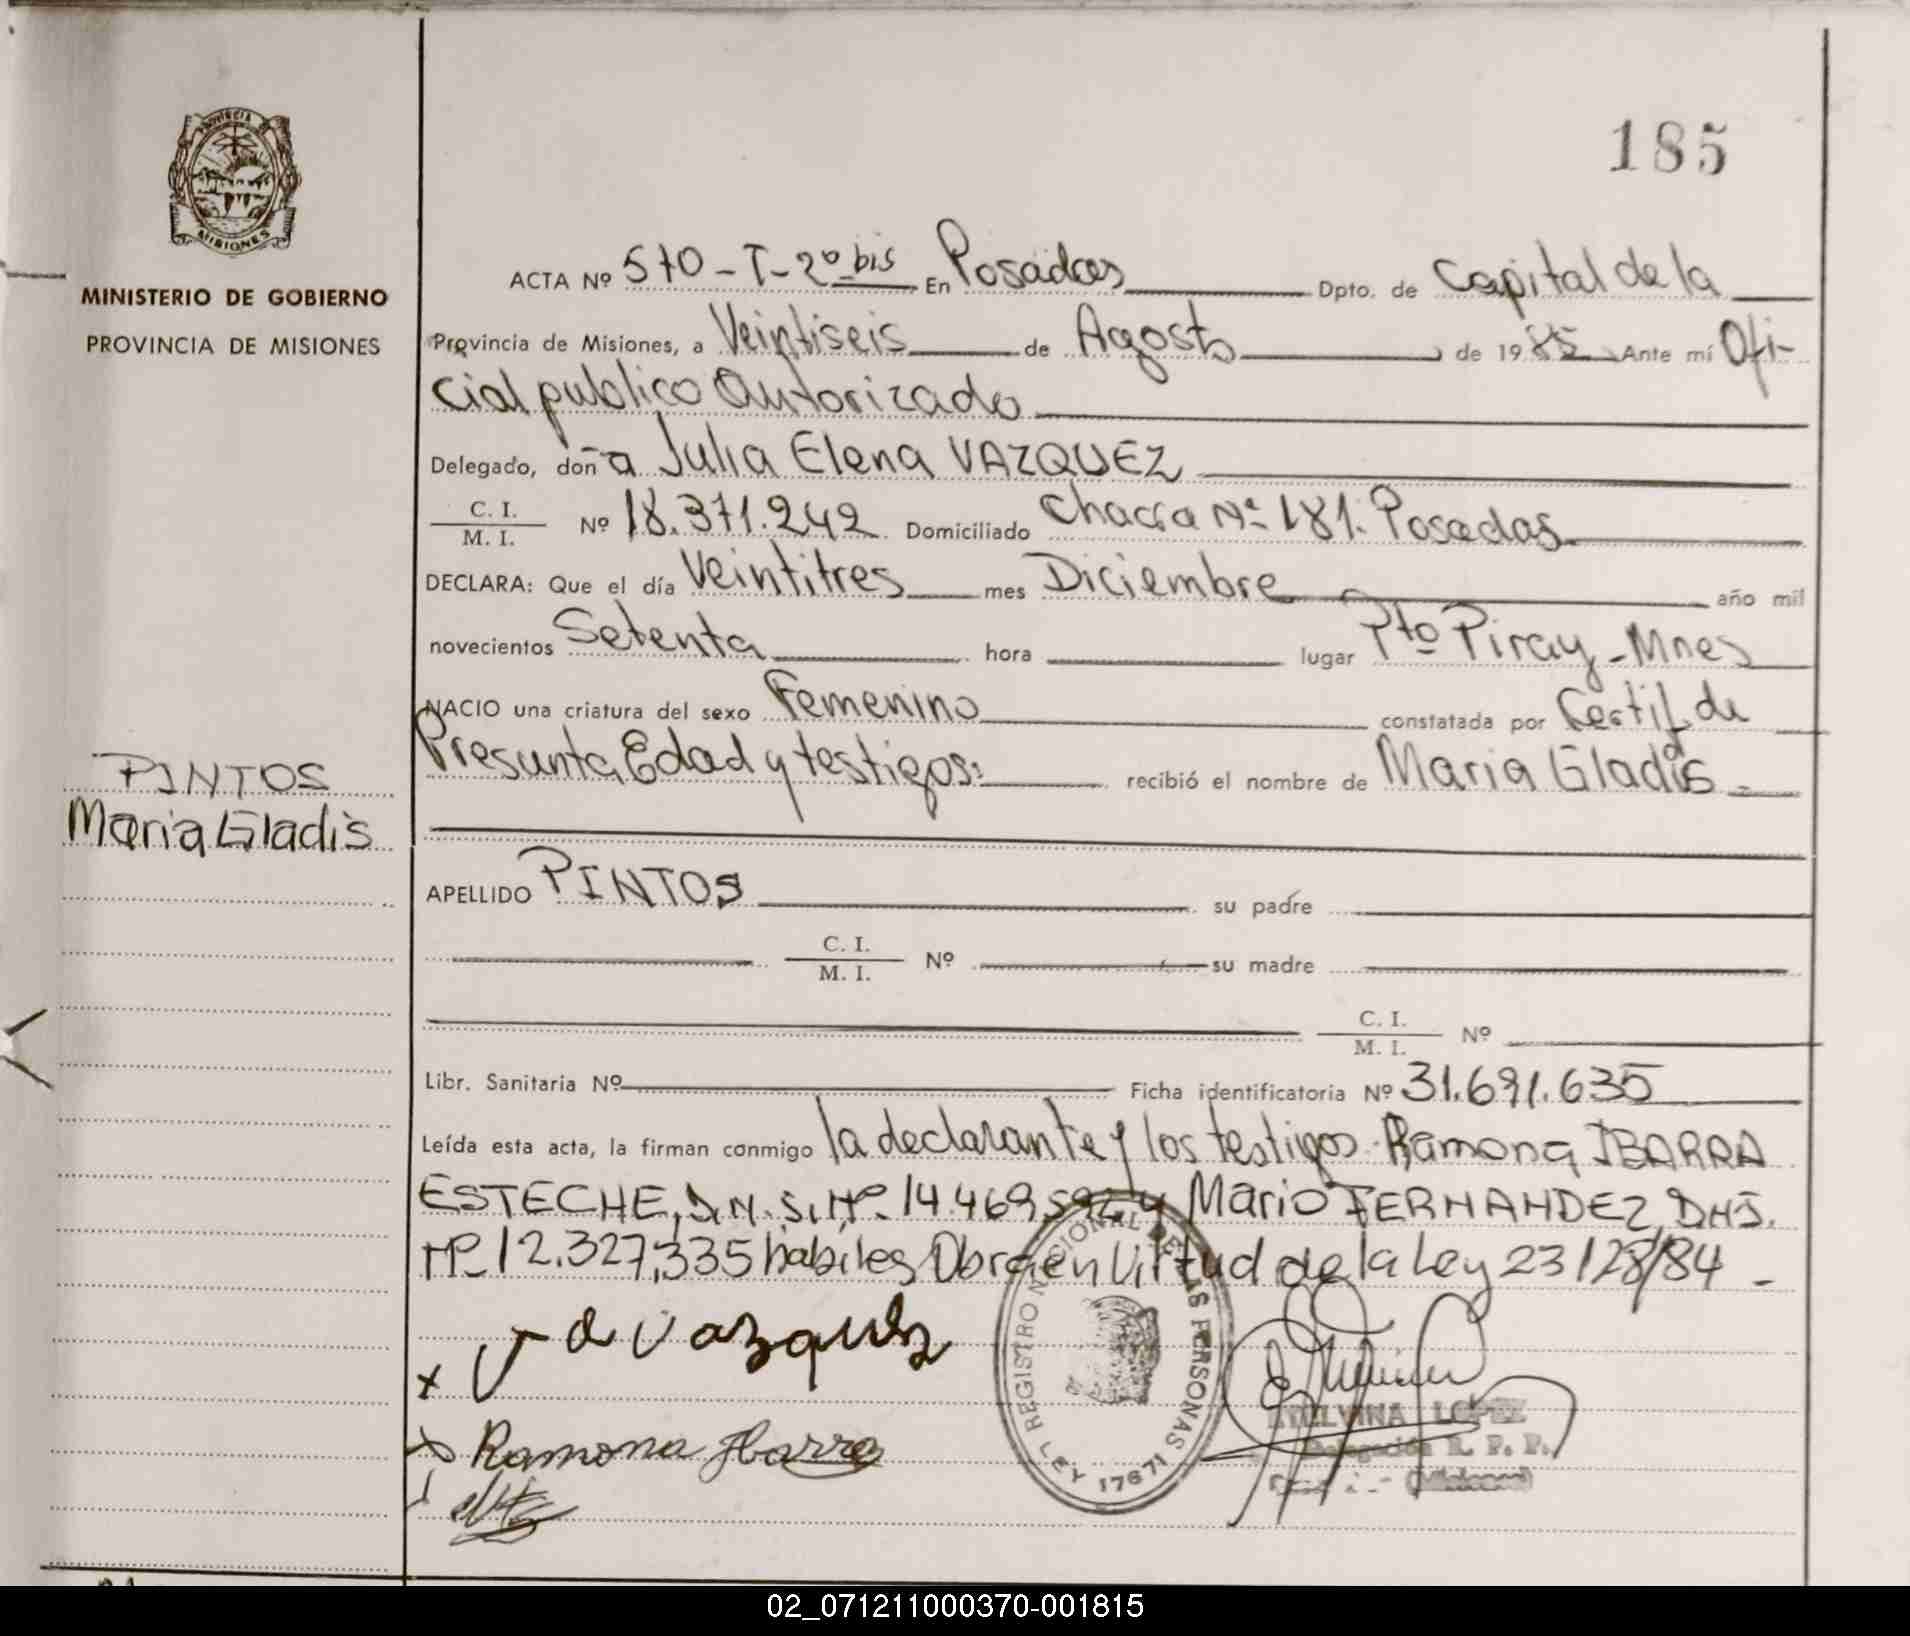 185
PROVINCIA DE
MISIONES
MINISTERIO DE GOBIERNO
PROVINCIA DE MISIONES
ACTA Nº 570-T-2º bis En Posadas Dpto. de Capital de la
Provincia de Misiones, a Veintiseis de Agosto de 1985 Ante mí Ofi-
cial publico Autorizado
Delegado, don a Julia Elena VAZQUEZ
C. I.
M. I. Nº 18.371.242 Domiciliado Chacra Nº 181. Posadas
DECLARA: Que el día Veintitres mes Diciembre año mil
novecientos Setenta hora lugar Pto Piray - Mnes
NACIO una criatura del sexo Femenino constatada por Certif. de
Presunta Edad y testigos: recibió el nombre de Maria Gladis
PINTOS
Maria Gladis
APELLIDO PINTOS su padre
C. I.
M. I. Nº su madre
C. I.
M. I. Nº
Libr. Sanitaria Nº Ficha identificatoria Nº 31.691.635
Leída esta acta, la firman conmigo la declarante y los testigos Ramona IBARRA
ESTECHE, D.N.I. Nº 14.469.592 y Mario FERNANDEZ, DNI.
Nº 12.327.335 habiles Obra en Virtud de la Ley 23128/84
x Vazquez
x Ramona Ibarra
REGISTRO NACIONAL DE LAS PERSONAS
LEY 17671
LOPEZ
Delegación R. P. P.
02_071211000370-001815